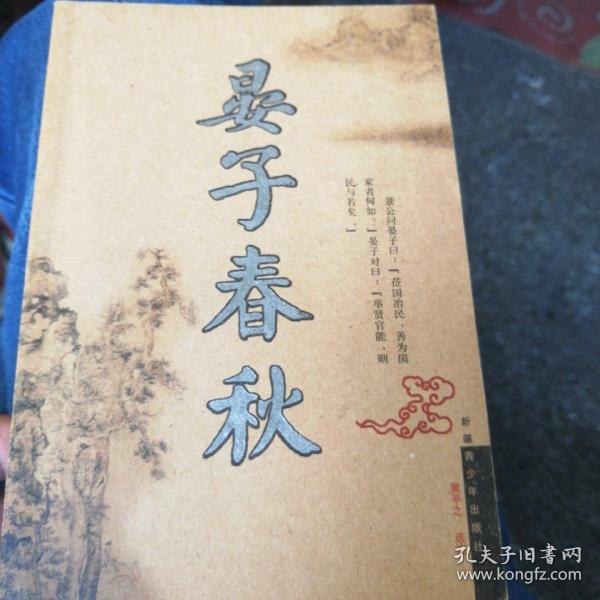 晏子春秋
景公问晏子曰:「莅国治民,善为国
家者何如?」晏子对曰:「举贤官能,则
民与若矣。」
新疆青少年出版社
黄平之
孔夫子旧书网
www.kongfz.com